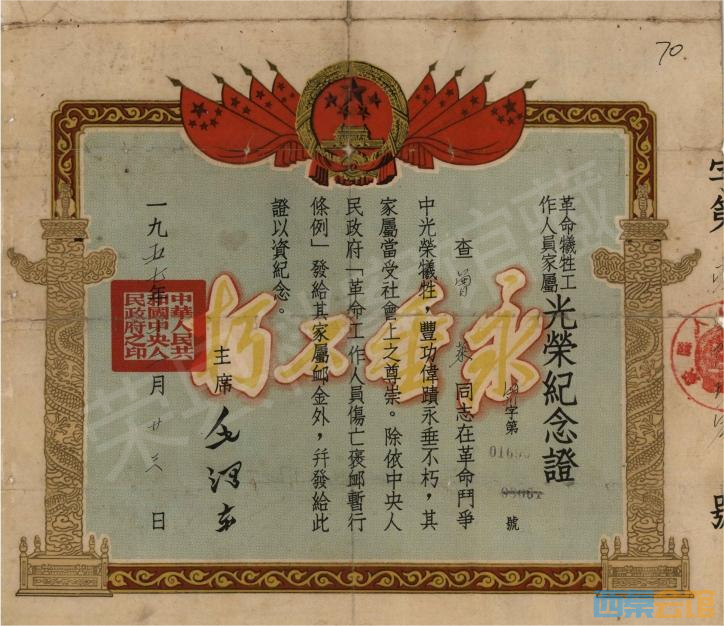 70
革命犧牲工
作人員家屬
光榮紀念證
字第
號
查
同志在革命鬥爭
中光榮犧牲，豐功偉蹟永垂不朽，其
家屬當受社會上之尊崇。除依中央人
民政府「革命工作人員傷亡褒卹暫行
條例」發給其家屬卹金外，幷發給此
證以資紀念。
主席 毛澤東
一九五 年 月廿三日
中華人民共
和國中央人
民政府之印
永垂不朽
號